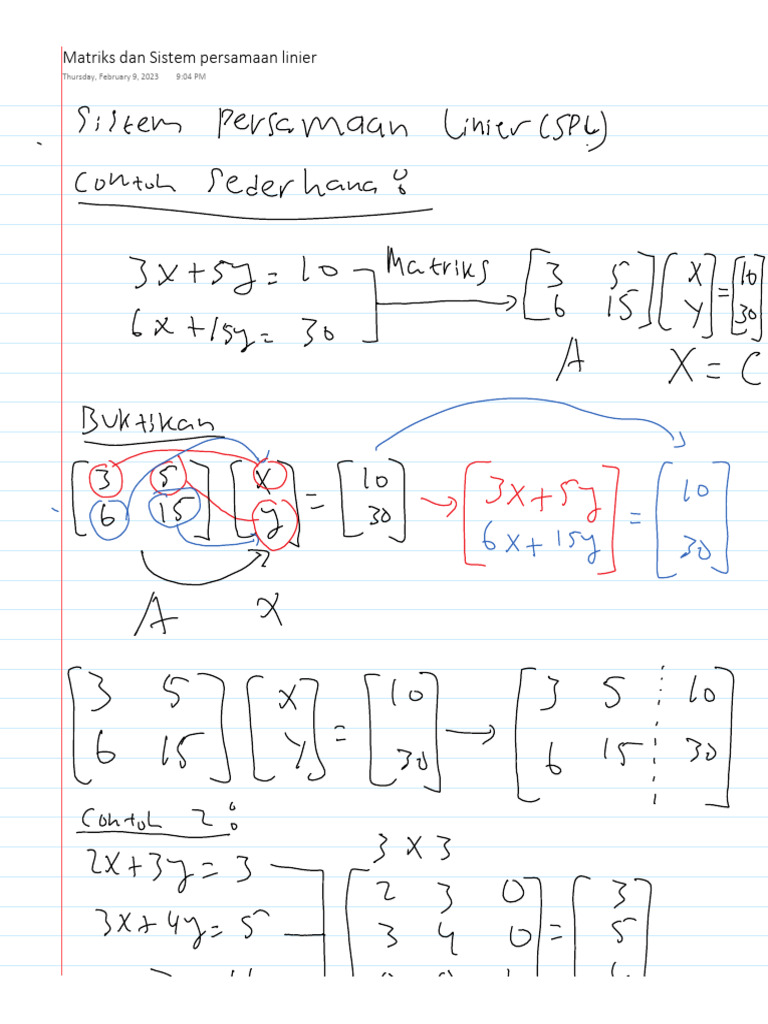 Matriks dan Sistem persamaan linier
Thursday, February 9, 2023 9:04 PM
Sistem Persamaan Linier (SPL)
Contoh Sederhana :
3x + 5y = 10
6x + 15y = 30
Matriks
[3 5] [x] = [10]
[6 15] [y] [30]
A X = C
Buktikan
[3 5] [x] = [10] → [3x + 5y] = [10]
[6 15] [y] [30] [6x + 15y] [30]
A X
[3 5] [x] = [10] → [3 5 ⋮ 10]
[6 15] [y] [30] [6 15 ⋮ 30]
Contoh 2 :
3 x 3
2x + 3y = 3 [2 3 0] = [3]
3x + 4y = 5 [3 4 0] [5]